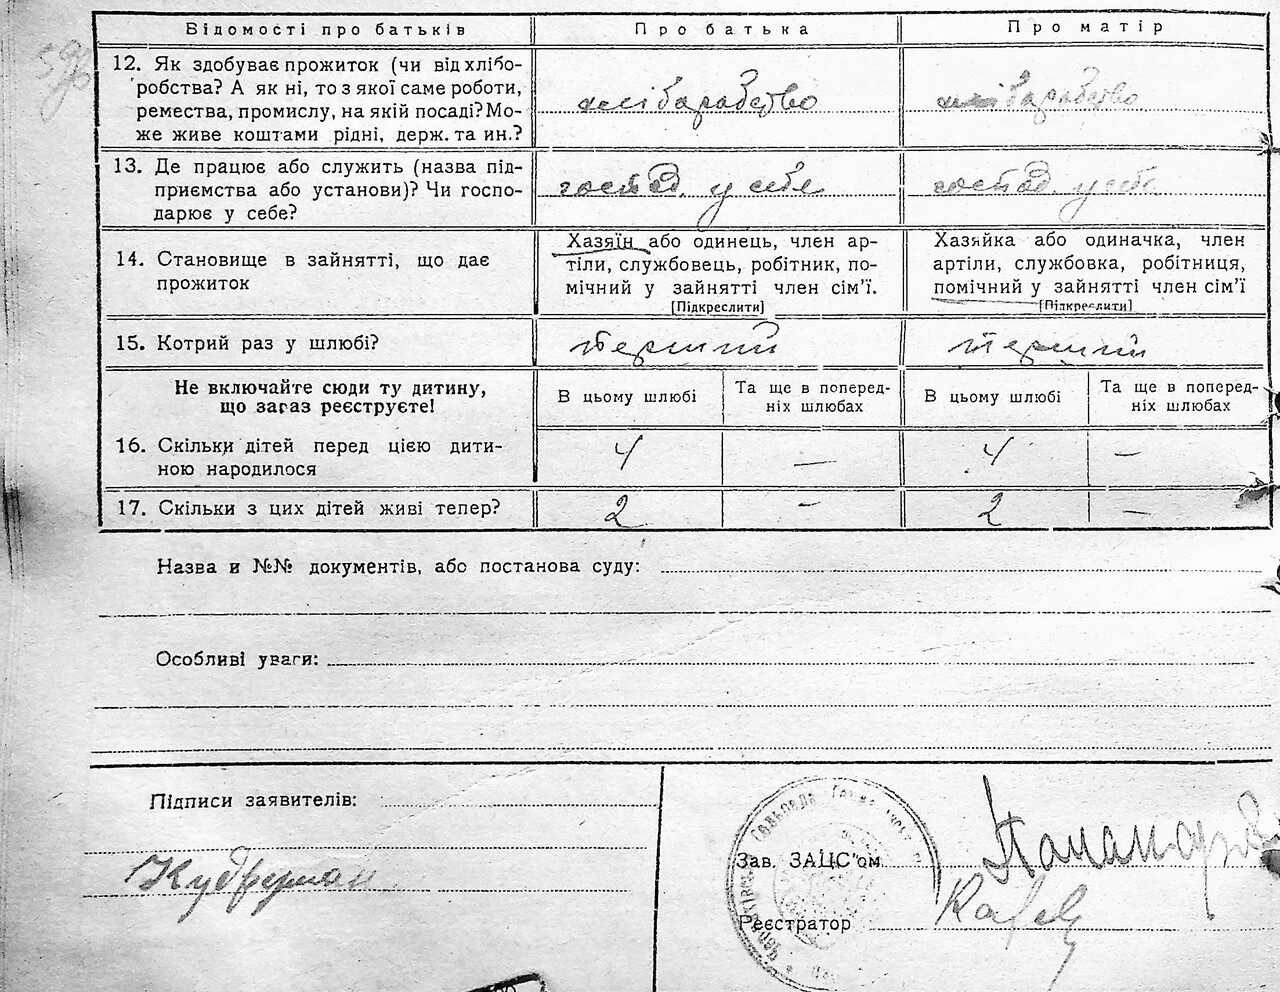 Відомості про батьків
Про батька
Про матір
12. Як здобуває прожиток (чи від хлібо-
робства? А як ні, то з якої саме роботи,
ремества, промислу, на якій посаді? Мо-
же живе коштами рідні, держ. та ин.?
хліборобство
хліборобство
13. Де працює або служить (назва під-
приємства або установи)? Чи госпо-
дарює у себе?
господ. у себе
господ. у себе
14. Становище в зайнятті, що дає
прожиток
Хазяїн або одинець, член ар-
тіли, службовець, робітник, по-
мічний у зайнятті член сім'ї.
[Підкреслити]
Хазяйка або одиначка, член
артіли, службовка, робітниця,
помічний у зайнятті член сім'ї
[Підкреслити]
15. Котрий раз у шлюбі?
перший
перший
Не включайте сюди ту дитину,
що загаз реєструєте!
В цьому шлюбі
Та ще в поперед-
ніх шлюбах
В цьому шлюбі
Та ще в поперед-
ніх шлюбах
16. Скільки дітей перед цією дити-
ною народилося
4
—
4
—
17. Скільки з цих дітей живі тепер?
2
—
2
—
Назва и №№ документів, або постанова суду:
Особливі уваги:
Підписи заявителів:
Зав. ЗАЦС'ом
Реєстратор